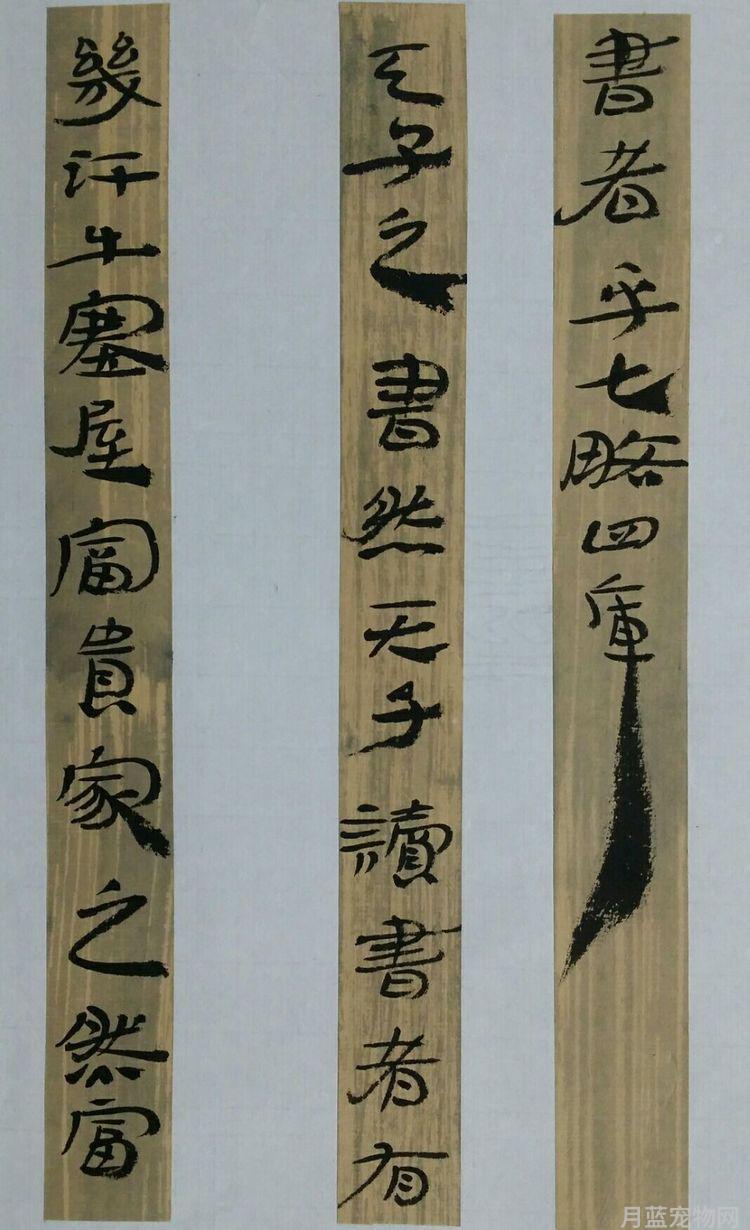 書者乎七略四庫
天子之書然天子讀書者有
幾汗牛塞屋富貴家之然富
月蓝宠物网